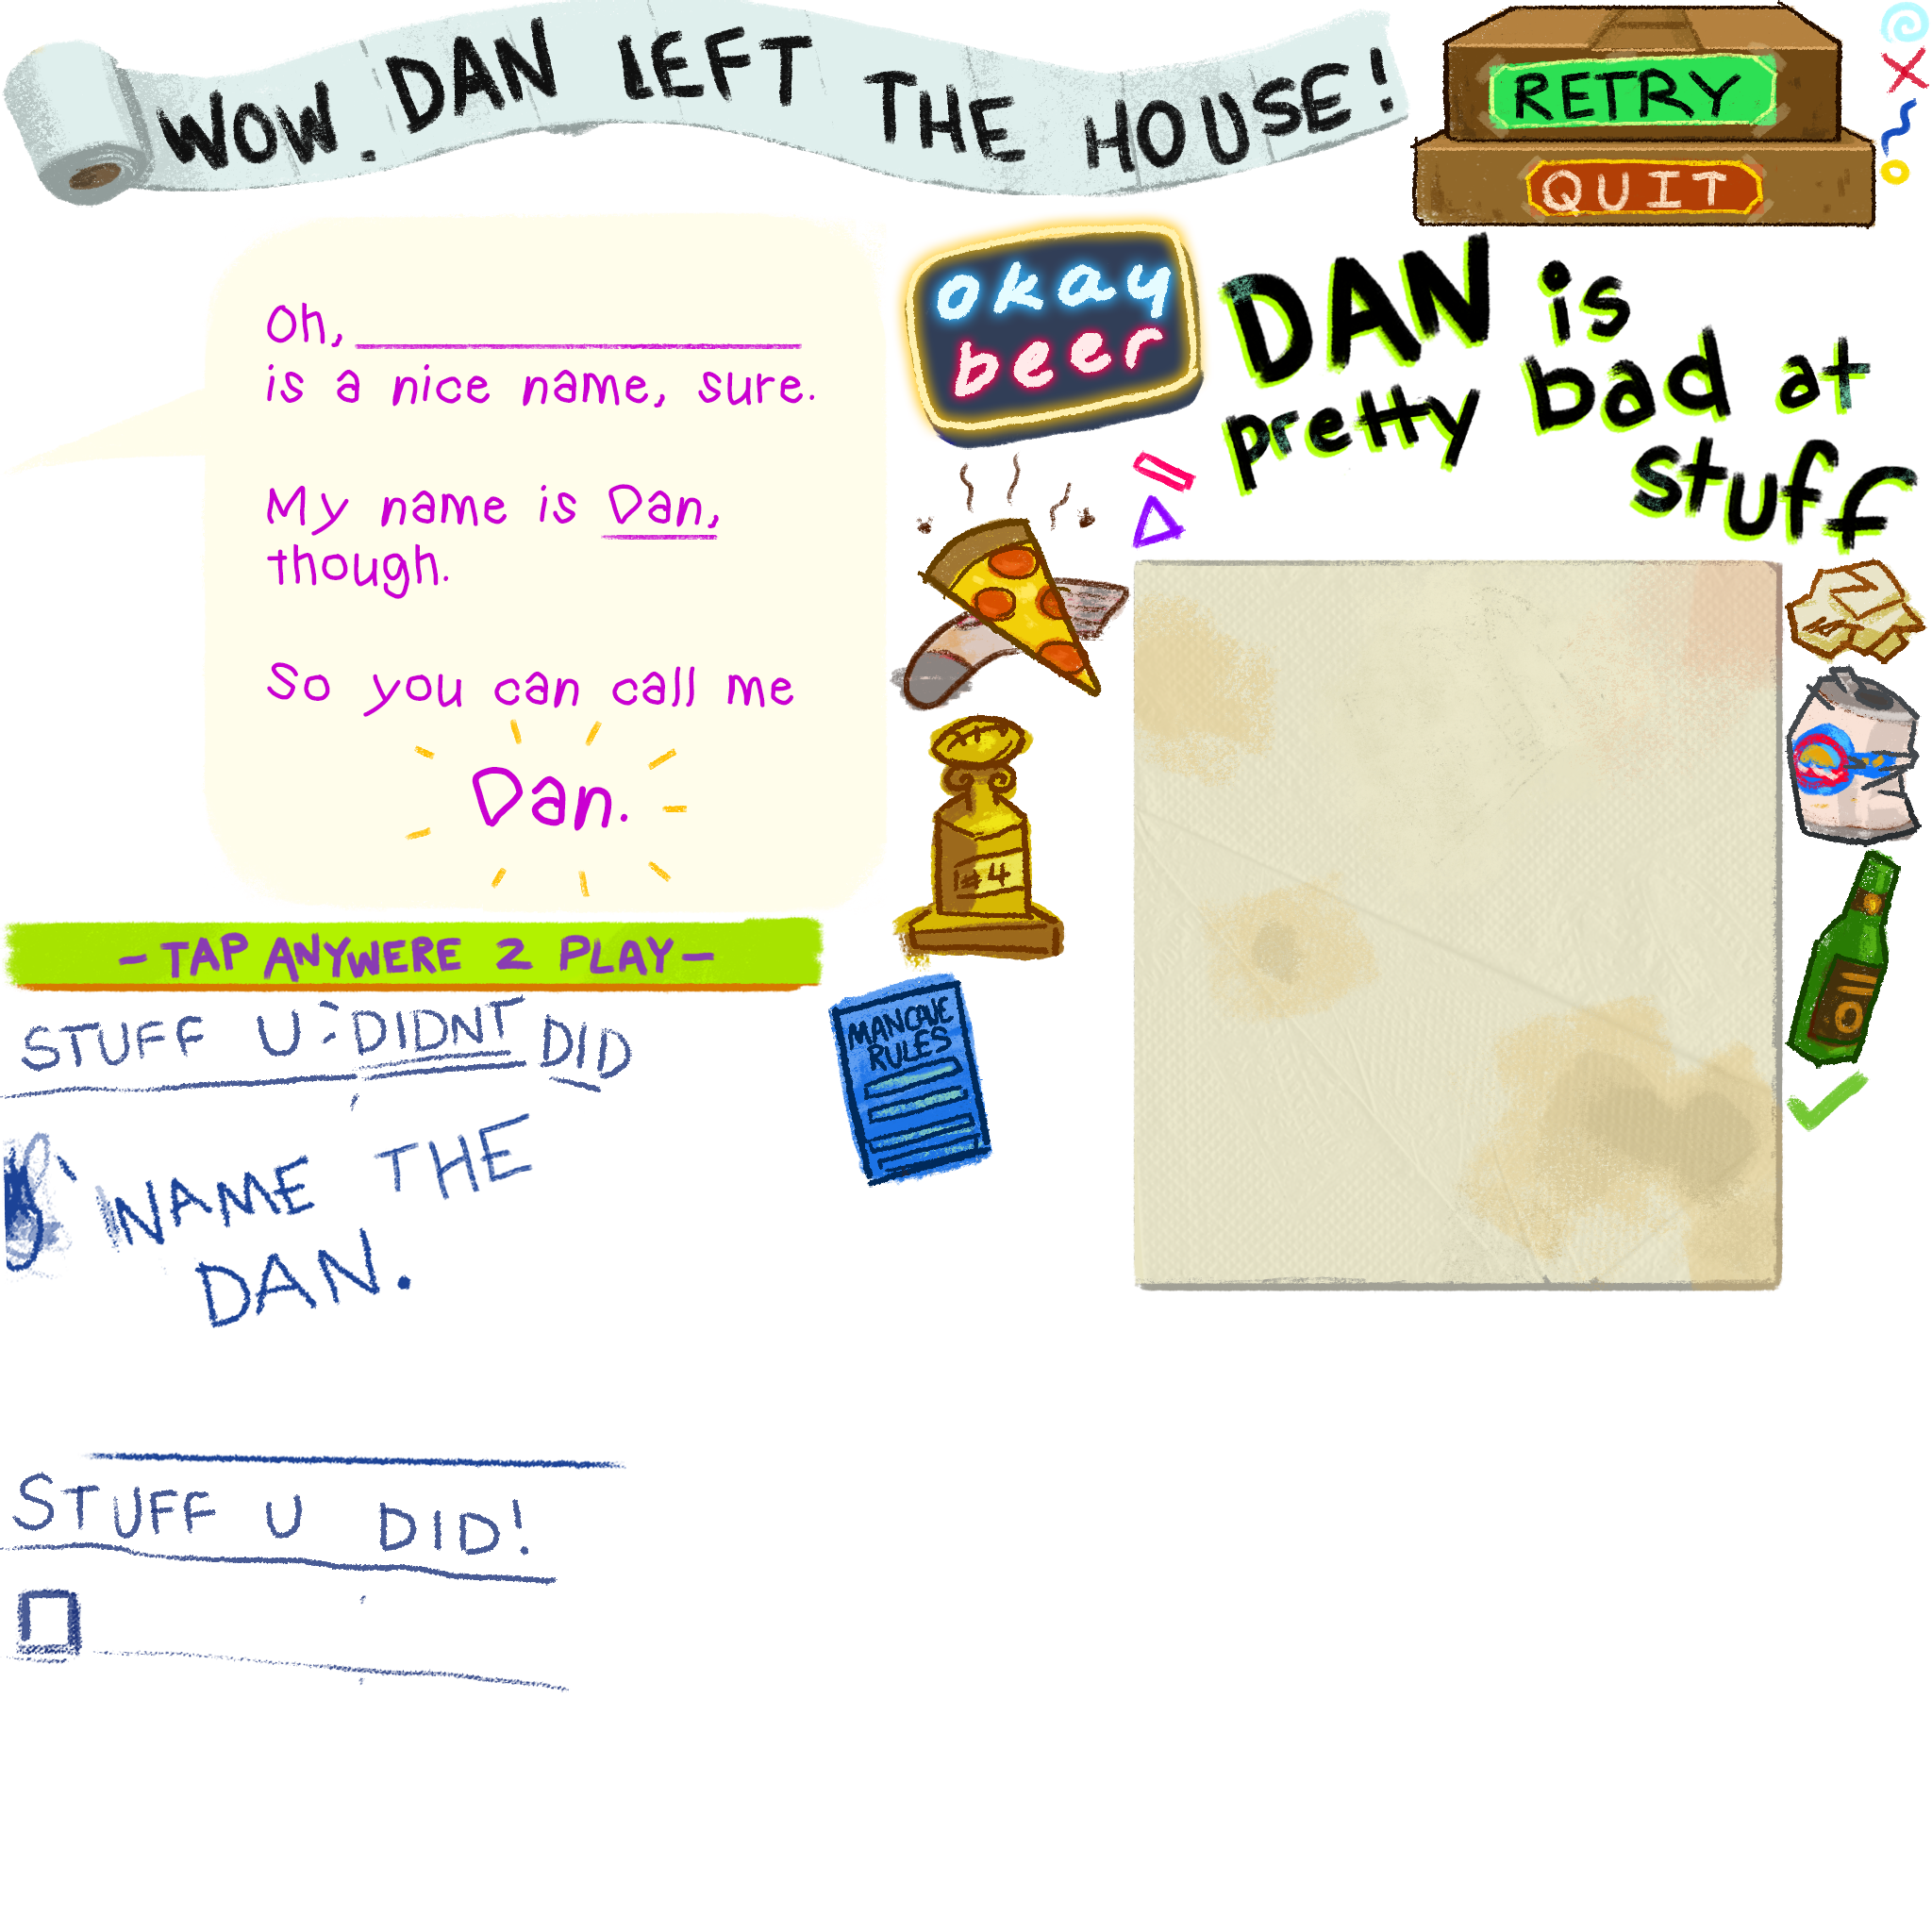 WOW. DAN LEFT THE HOUSE!
RETRY
QUIT
Oh,
is a nice name, sure.
My name is Dan,
though.
So you can call me
Dan.
okay
beer
DAN is
pretty bad at
stuff
#4
- TAP ANYWERE 2 PLAY -
MANCAVE
RULES
STUFF U DIDNT DID
NAME THE
DAN.
STUFF U DID!